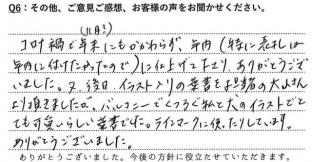 Q6：その他、ご意見ご感想、お客様の声をお聞かせください。
(11月に)
コロナ禍で年末にもかかわらず、年内(特に表札は
年内に付けたかったので)に仕上げて下さり、ありがとうござ
いました。又、後日イラスト入りの葉書を担当者の大山さん
より頂きましたが、バルコニーでくつろぐ私と犬のイラストでと
ても可愛いらしい葉書でした。ラインマークに使ったりしています。
ありがとうございました。
ありがとうございました。今後の方針に役立たせていただきます。